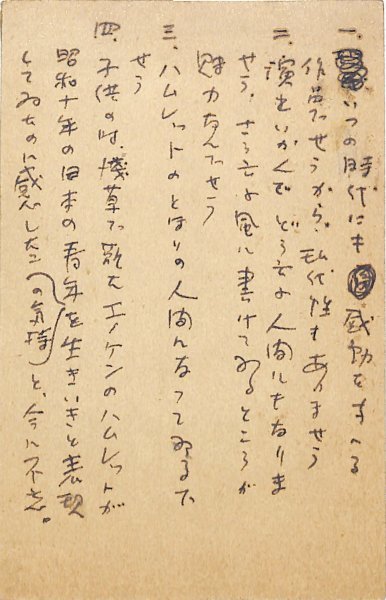 一、いつの時代にも感動をすへる
作品でせうから、現代性もありませう
二、演出いかんでどう云ふ人間にもなりま
せう、さう云ふ風に書けてゐるところが
魅力なんでせう
三、ハムレットのとほりの人間になってゐるで
せう
四、子供の時、浅草で観たエノケンのハムレットが
昭和十年の日本の青年を生きいきと表現
してゐたのに感心したこの気持と、今に不忘。